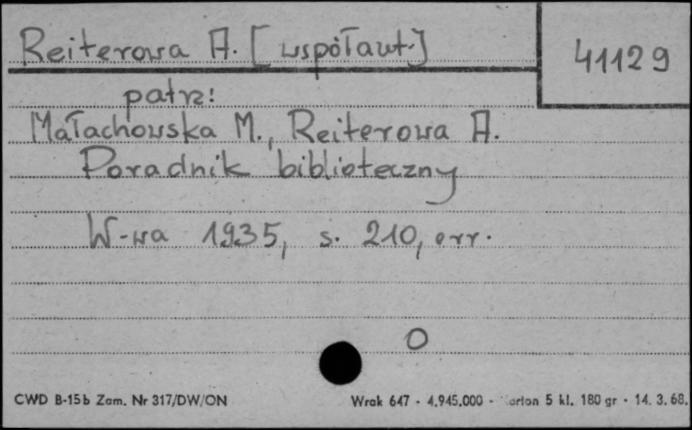 Reiterowa A. [współaut.]
41129
patrz:
Małachowska M., Reiterowa A.
Poradnik biblioteczny
W-wa 1935, s. 210, err.
O
CWD B-15b Zam. Nr 317/DW/ON
Wrak 647 - 4.945.000 - 5 kl. 180 gr - 14. 3. 68.